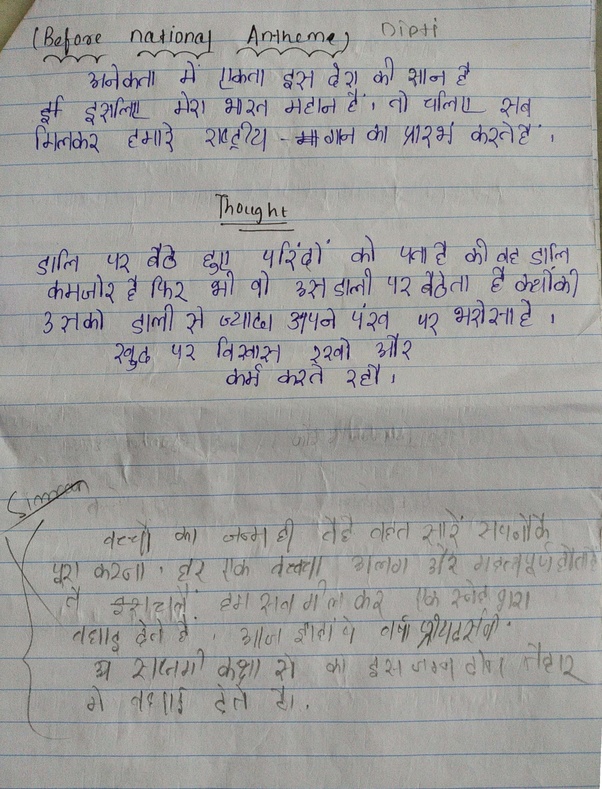 (Before national Antheme) Dipti
अनेकता में एकता इस देश की शान है
इसलिए मेरा भारत महान है, तो चलिए सब
मिलकर हमारे राष्ट्रीय गान का प्रारंभ करते है।
Thought
डालि पर बैठे हुए परिंदों को पता है की वह डालि
कमजोर है फिर भी वो उस डाली पर बैठेता है क्योंकी
उसको डाली से ज्यादा अपने पंख पर भरोसा है।
खुद पर विश्वास रखो और
कर्म करते रहो।
Simran
बच्चो का जन्म ही बहुत सारे सपनोके
पूरा करना। हर एक बच्चा अलग और महत्वपूर्ण होता
है हम सब मील कर एक द्वारा
बधाइ देते है। आज
कक्षा से का इस जन्म
मे बधाई देते है।